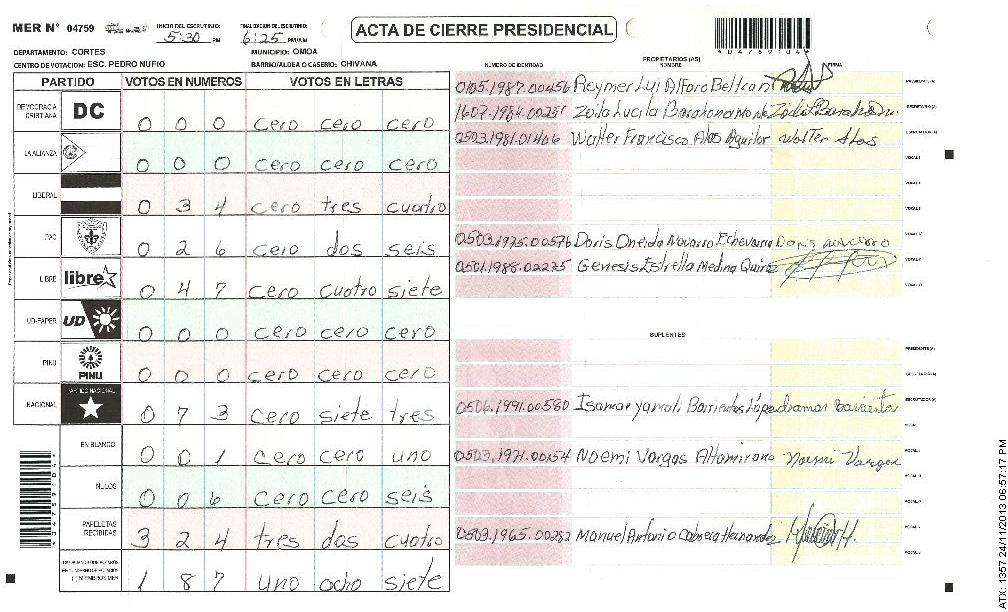 MER N° 04759 INICIO DEL ESCRUTINIO: 5:30 PM FINALIZACION DEL ESCRUTINIO: 6:25 PM/AM
ACTA DE CIERRE PRESIDENCIAL
DEPARTAMENTO: CORTES MUNICIPIO: OMOA
CENTRO DE VOTACION: ESC. PEDRO NUFIO BARRIO/ALDEA O CASERIO: CHIVANA
PARTIDO VOTOS EN NUMEROS VOTOS EN LETRAS
DEMOCRACIA CRISTIANA DC 0 0 0 cero cero cero
LA ALIANZA 0 0 0 cero cero cero
LIBERAL 0 3 4 cero tres cuatro
PAC 0 2 6 cero dos seis
LIBRE libre 0 4 7 cero cuatro siete
UD-FAPER UD 0 0 0 cero cero cero
PINU PINU 0 0 0 cero cero cero
NACIONAL PARTIDO NACIONAL 0 7 3 cero siete tres
EN BLANCO 0 0 1 cero cero uno
NULOS 0 0 6 cero cero seis
PAPELETAS RECIBIDAS 3 2 4 tres dos cuatro
1 8 7 uno ocho siete
PROPIETARIOS (AS)
NUMERO DE IDENTIDAD NOMBRE FIRMA
0105.1987.00456 Reymer Lui Alfaro Beltran PRESIDENTE (A)
Zoila Lucila Barahona SECRETARIO (A)
0503.1981.01406 Walter Francisco Alas Aguilar Walter Alas ESCRUTADOR (A)
VOCAL I
0503.1975.00576 Doris Oneida Navarro Echevarria Doris Navarro
0501.1988.02275 Genesis Estrella Medina Quiroz
SUPLENTES
PRESIDENTE (A)
SECRETARIO (A)
0506.1991.00580 Isamar Barrientos Isamar Barrientos ESCRUTADOR (A)
0503.1971.00154 Noemi Vargas Altamirano Noemi Vargas
0503.1965.00282 Manuel Antonio Cabrera Hernandez
ATX: 1357 24/11/2013 06:57:17 PM